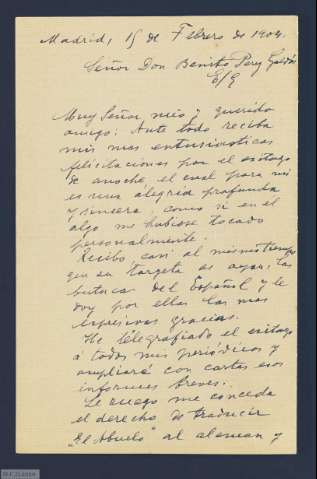 Madrid, 15 de Febrero de 1904.
Señor Don Benito Perez Galdós
E/S
Muy Señor mio y querido
amigo: Ante todo reciba
mis mas entusiasticas
felicitaciones por el éxitazo
de anoche, el cual para mi
es una alegria profunda
y sincera, como si en el
algo me hubiese tocado
personalmente.
Recibo casi al mismo tiempo
que su targeta de ayer, las
butacas del Español y le
doy por ellas las mas
expresivas gracias.
He telegrafiado el exitazo
á todos mis periódicos y
ampliaré con cartas esos
informes breves.
Le ruego me conceda
el derecho de traducir
"El Abuelo" al aleman y